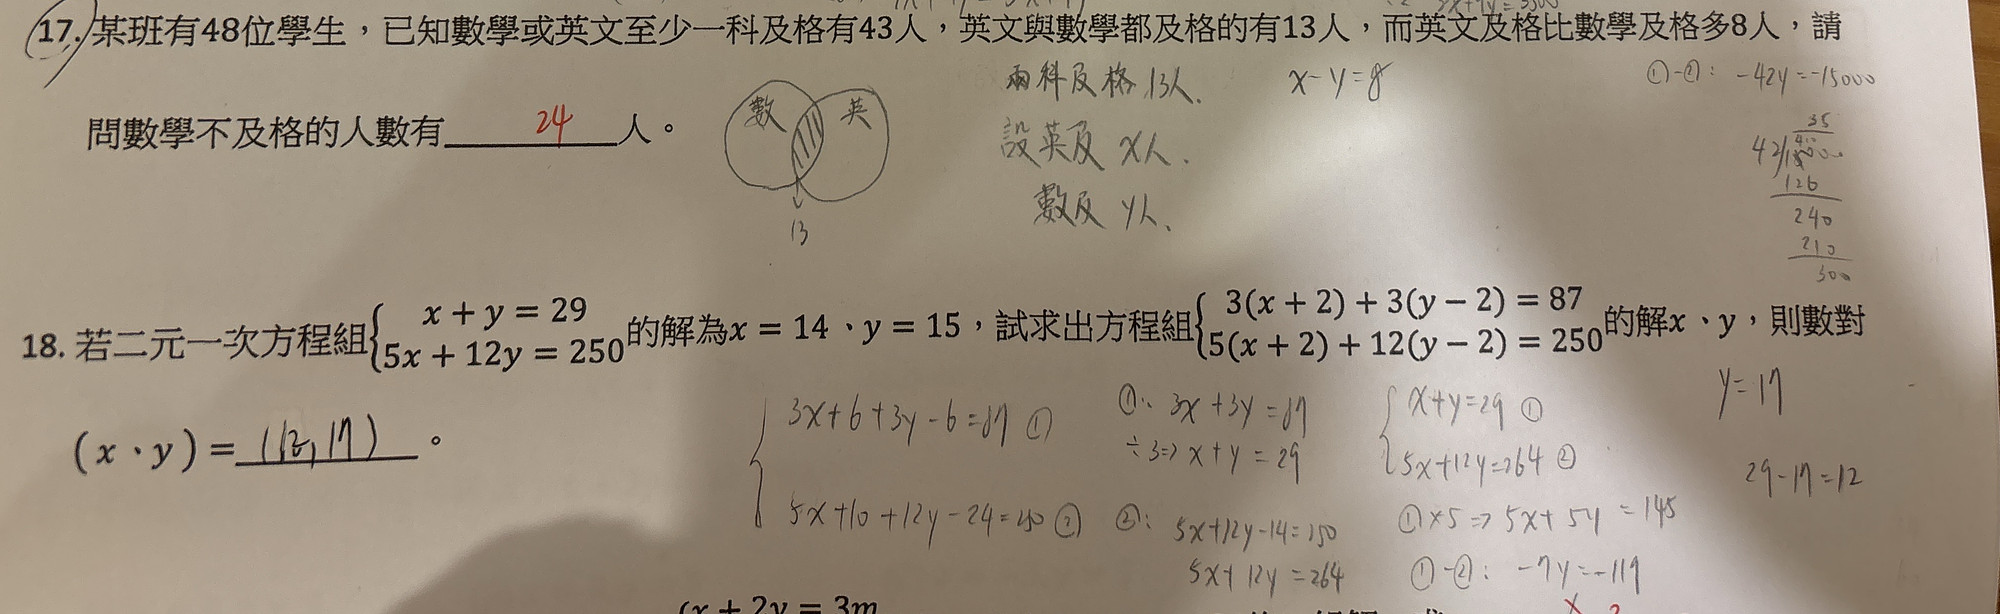 17. 某班有48位學生，已知數學或英文至少一科及格有43人，英文與數學都及格的有13人，而英文及格比數學及格多8人，請
兩科及格13人. x-y=8 ①-②: -42y=-15000
問數學不及格的人數有 24 人。
數 英
設英及 x人.
數及 y人.
13
35
42
126
240
210
300
18. 若二元一次方程組{x + y = 29 5x + 12y = 250 的解為x = 14、y = 15，試求出方程組{3(x + 2) + 3(y − 2) = 87 5(x + 2) + 12(y − 2) = 250 的解x、y，則數對
(x、y) = (12,17)。
{3x+6+3y-6=87 ①
5x+10+12y-24=250 ②
①: 3x+3y=87
÷3=> x+y=29
②: 5x+12y-14=250
5x+12y=264
{x+y=29 ①
5x+12y=264 ②
①×5=> 5x+5y=145
①-②: -7y=-119
y=17
29-17=12
(x + 2y = 3m